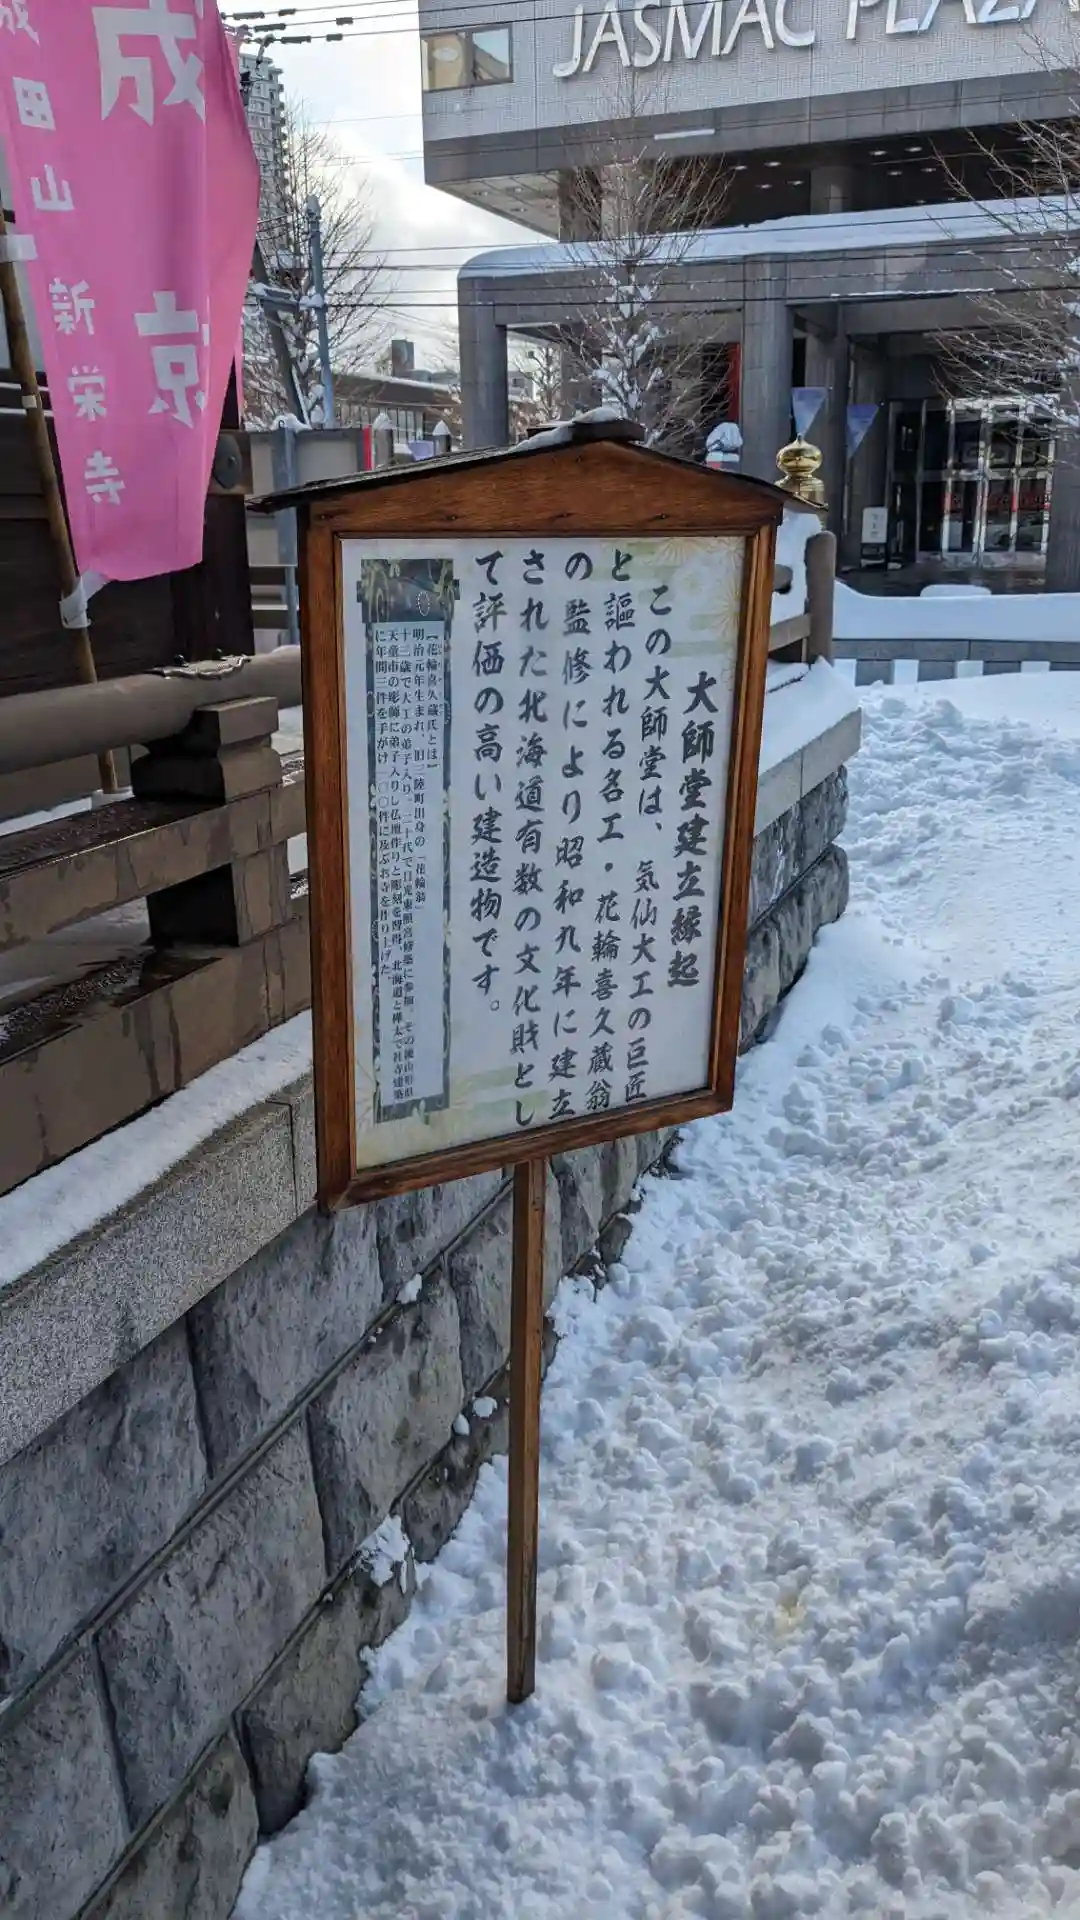 JASMAC PLAZA
成田山 新栄寺
大師堂建立縁起
この大師堂は、気仙大工の巨匠
と謳われる名工・花輪喜久蔵翁
の監修により昭和九年に建立
された北海道有数の文化財とし
て評価の高い建造物です。
【花輪喜久蔵氏とは】
明治元年生まれ、旧三陸町出身の「花輪翁」
十三歳で大工の弟子入り、二十代で日光東照宮修築に参加、その後山形県
天童市の彫師に弟子入りし仏壇作りと彫刻を習得、北海道と樺太で社寺建築
に年間三件を手がけ一〇〇件に及ぶお寺を作り上げた。